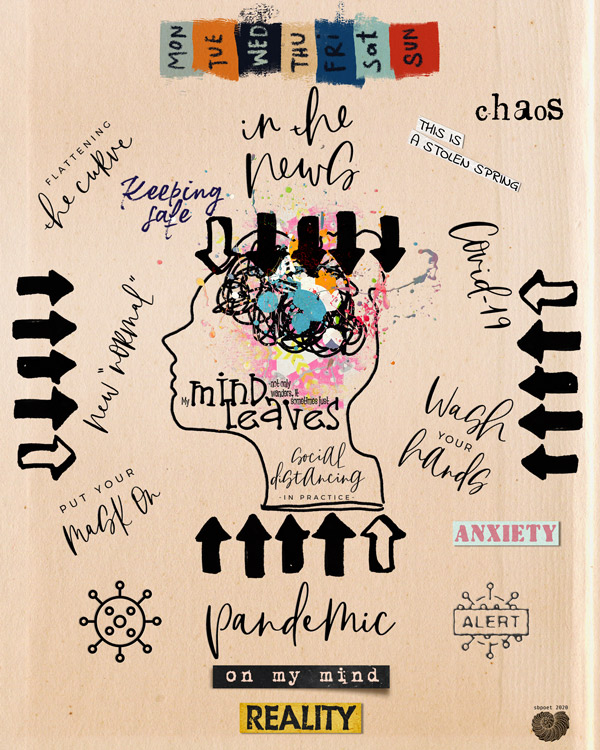 MON TUE WED THU FRI Sat SUN
in the
news
chaos
THIS IS
A STOLEN SPRING
FLATTENING
the curve
Keeping
safe
Covid-19
new "normal"
My mind
not only
wanders, it
sometimes just
leaves
Wash
YOUR
hands
social
distancing
-IN PRACTICE-
PUT YOUR
mask on
ANXIETY
pandemic
ALERT
on my mind
REALITY
sbpoet 2020